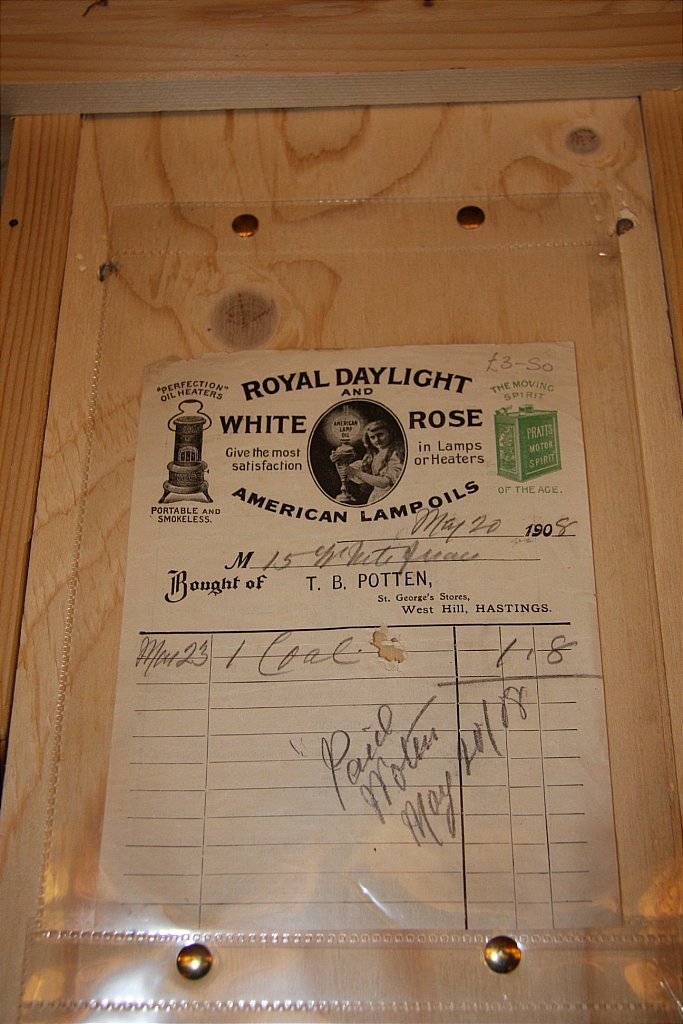 £3-50
"PERFECTION"
OIL HEATERS
PORTABLE AND
SMOKELESS.
ROYAL DAYLIGHT
AND
WHITE ROSE
Give the most
satisfaction
AMERICAN
LAMP
OIL
in Lamps
or Heaters
AMERICAN LAMP OILS
THE MOVING
SPIRIT
PRATTS
MOTOR
SPIRIT
OF THE AGE.
May 20 1908
M 15
Bought of T. B. POTTEN,
St. George's Stores,
West Hill, HASTINGS.
Mar 23 1 Coal 1.8
Paid
Potten
May 20/08